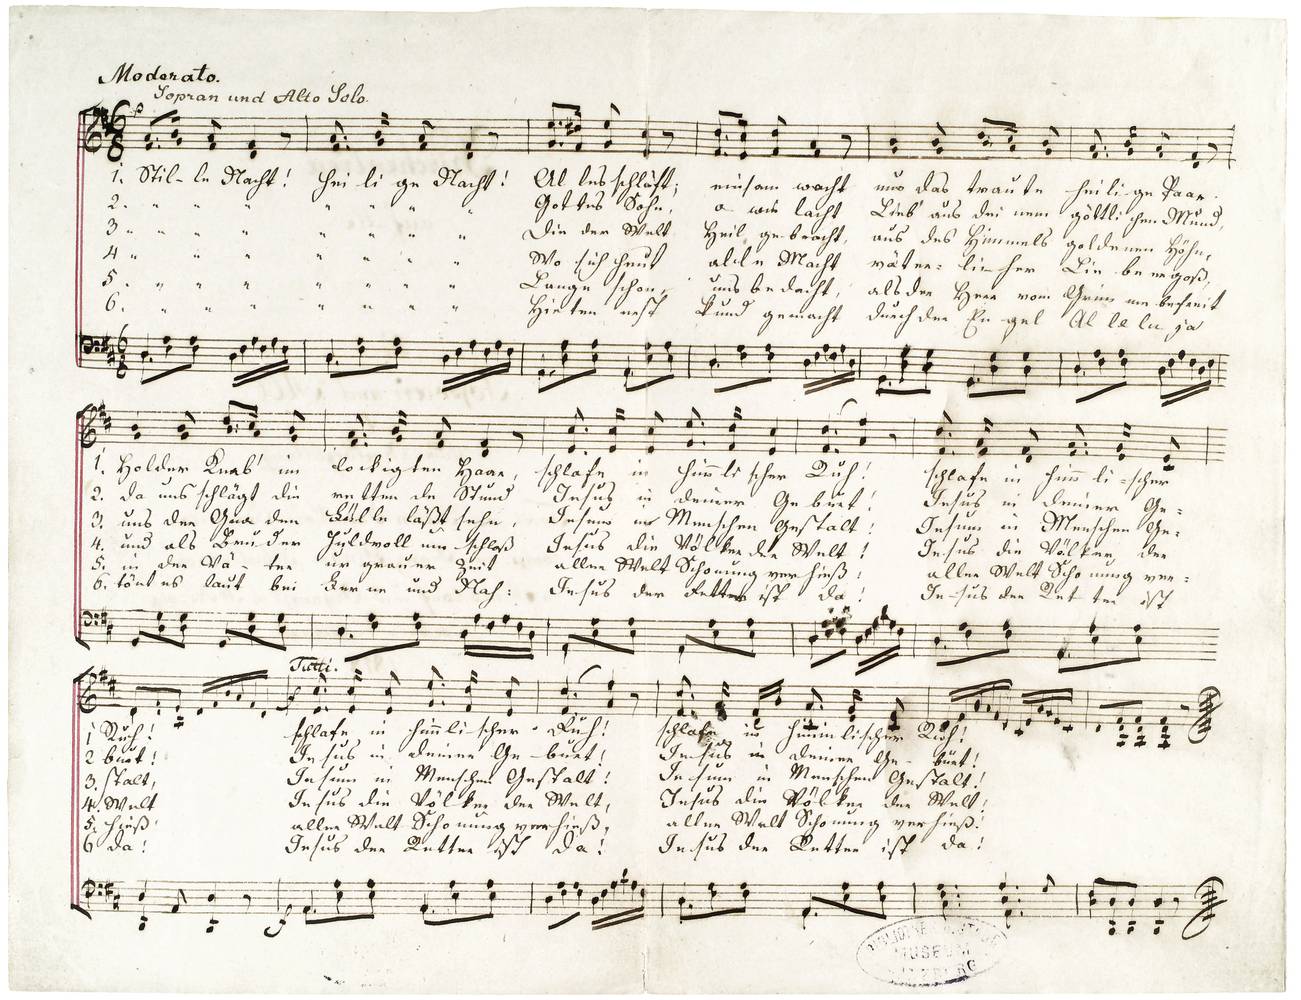 Moderato.
Sopran und Alto Solo.
1. Stil- le Nacht! Hei li ge Nacht! Al les schläft; einsam wacht nur das traute heili-ge Paar.
2. " " " " " " " Gottes Sohn, o wie lacht Lieb' aus dei nem göttli chen Mund,
3 " " " " " " " Die der Welt Heil gebracht, aus des Himmels goldenen Höhn,
4 " " " " " " " Wo sich heut alle Macht väter- li-cher Lie be ergoß,
5. " " " " " " " Lange schon, uns bedacht, als der Herr vom Grim me befreit
6. " " " " " " " Hirten erst kund gemacht durch der En gel Al le lu ja
1. Holder Knab' im lockigten Haar, schlafe in himmli scher Ruh! schlafe in himm li-scher
2. da uns schlägt die rettende Stund Jesus in deiner Geburt! Jesus in deiner Ge-
3. uns der Gna den Fülle läßt sehn, Jesum in Menschen Gestalt! Jesum in Menschen Ge-
4. und als Bruder huldvoll um schloß Jesus die Völker der Welt! Jesus die Völker der
5. in der Vä- ter ur grauer Zeit aller Welt Schonung verhieß! aller Welt Scho nung ver-
6. tönt es laut bei Ferne und Nah: Jesus der Retter ist da! Je-sus der Ret- ter ist
Tutti.
1 Ruh! schlafe in himmli scher Ruh! schlafe in himmlischer Ruh!
2 burt! Je sus in deiner Ge- burt! Je-sus in deiner Ge- burt!
3. stalt, Je sum in Menschen Gestalt! Je-sum in Menschen Gestalt!
4. Welt Je sus die Völker der Welt, Jesus die Völker der Welt,
5. hieß! aller Welt Scho nung verhieß, aller Welt Scho nung verhieß.
6 da! Jesus der Retter ist da! Je-sus der Retter ist da!
MUSEUM